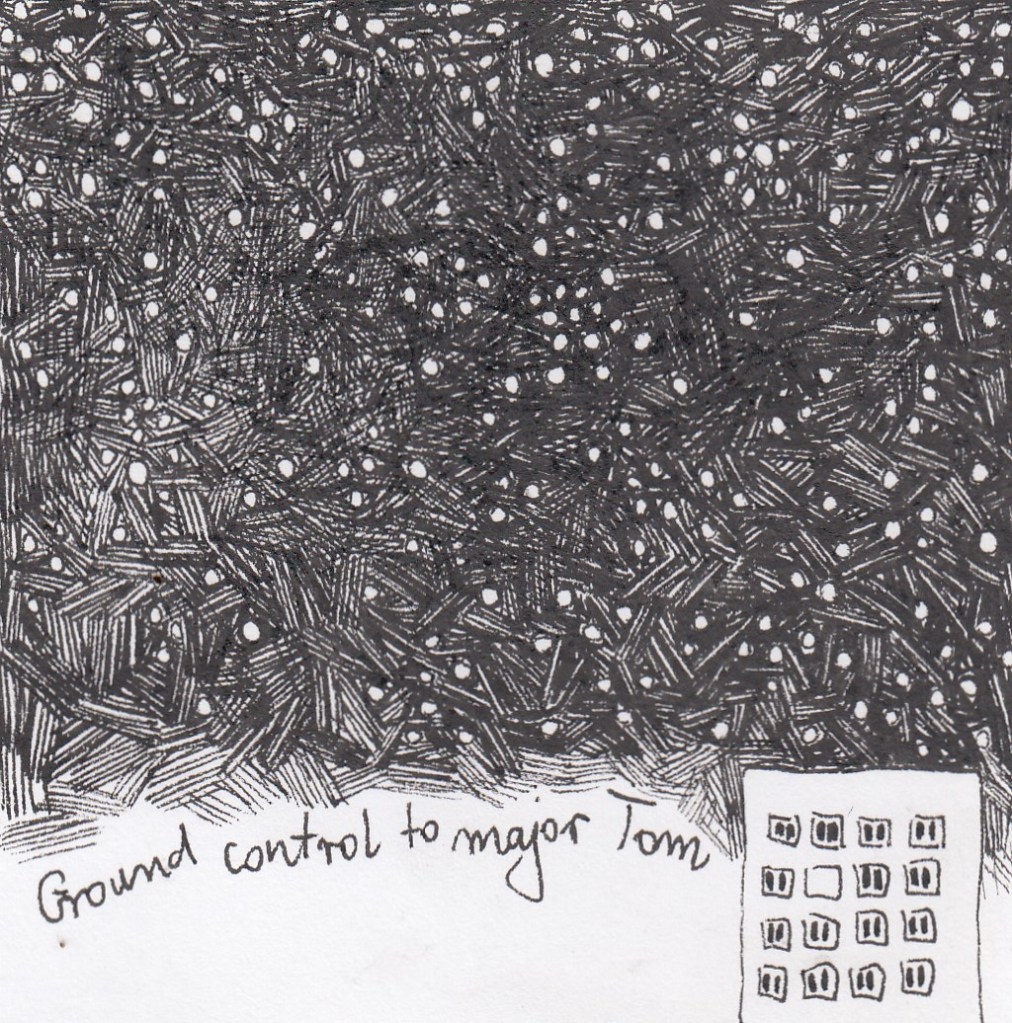 Ground control to major Tom